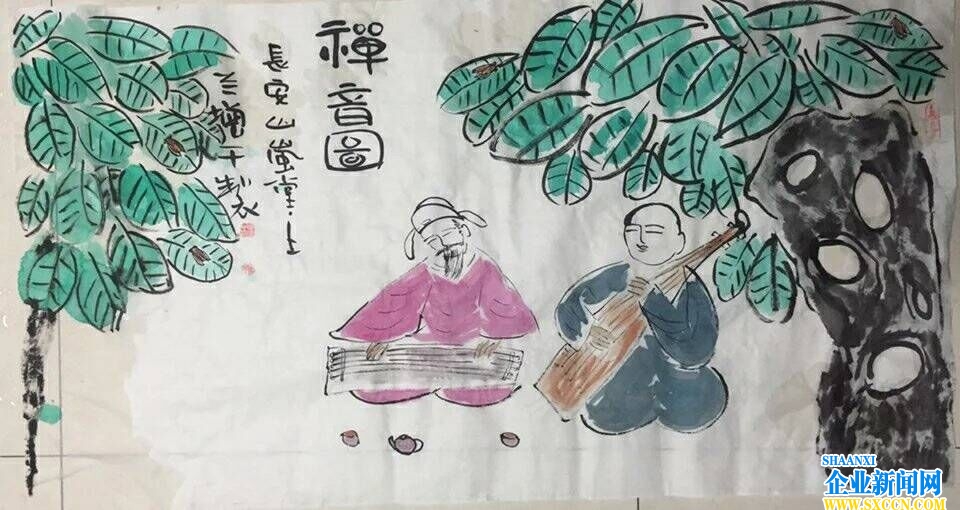 禪音圖
長安山嵐堂
製
SHAANXI
企业新闻网
WWW.SXCCN.COM